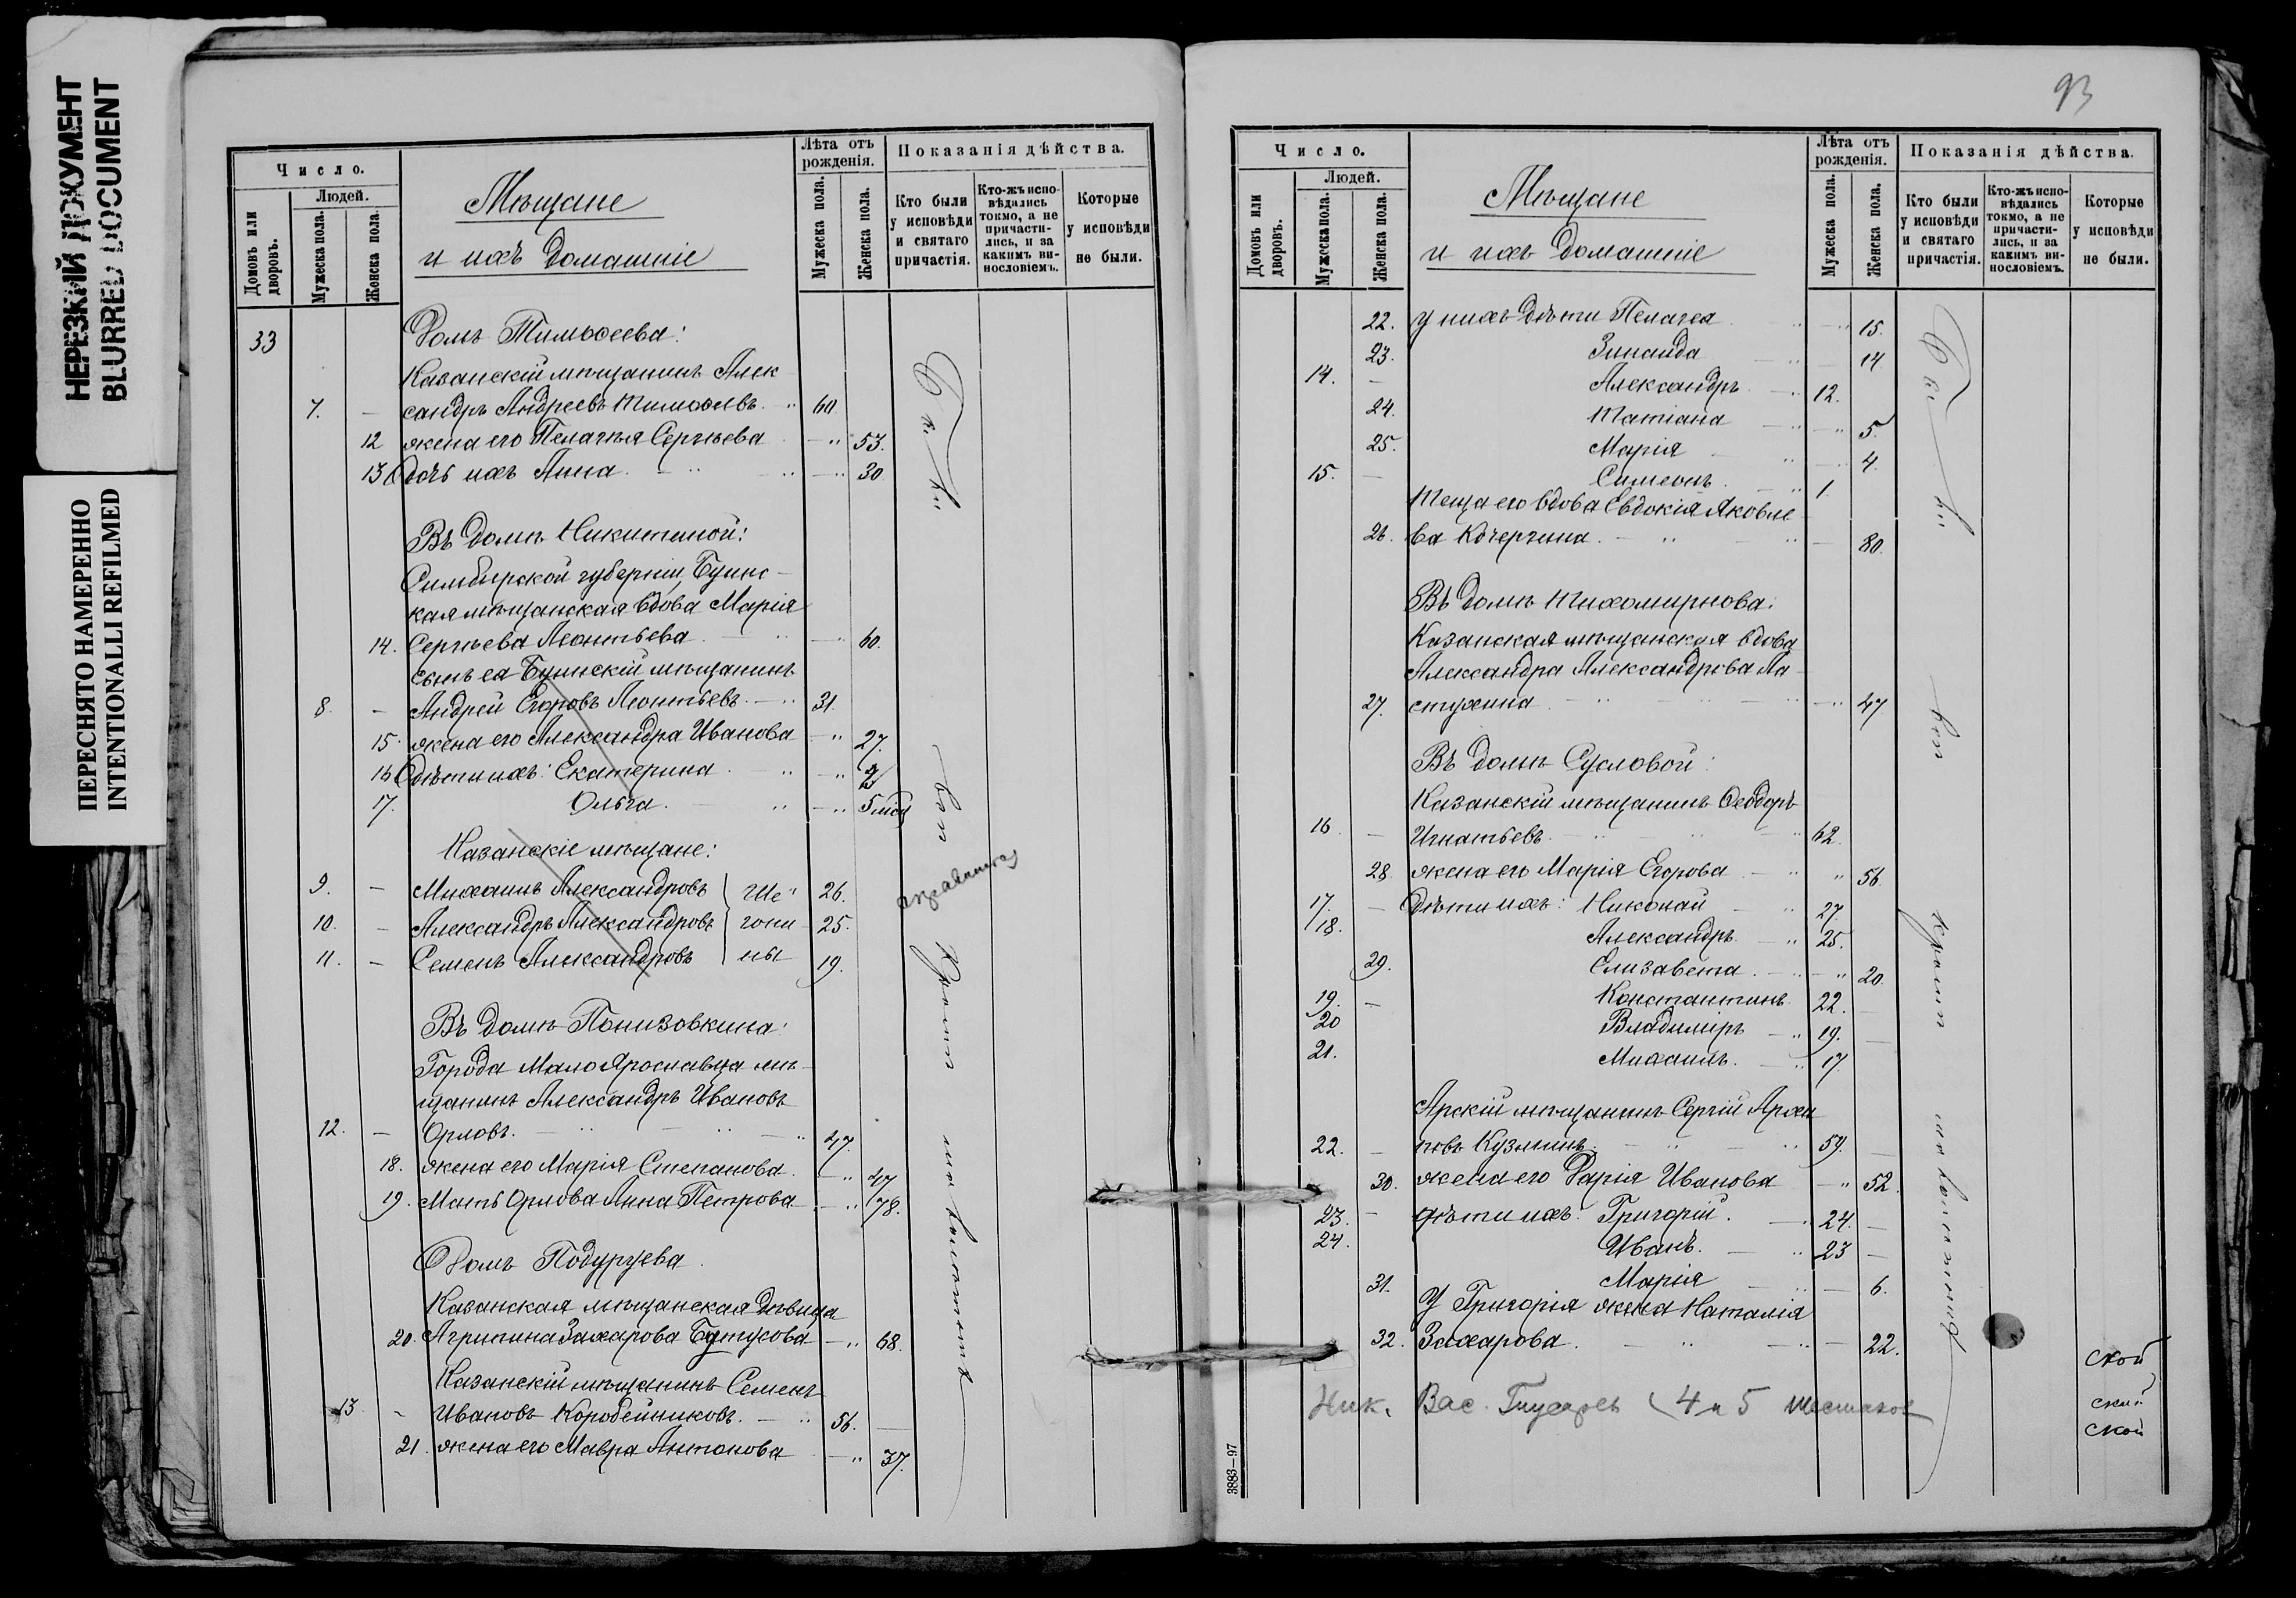 НЕРЕЗКИЙ ДОКУМЕНТ
BLURRED DOCUMENT
ПЕРЕСНЯТО НАМЕРЕННО
INTENTIONALLI REFILMED
Число.
Домовъ или дворовъ.
Людей.
Мужеска пола.
Женска пола.
Мѣщане
и ихъ домашніе
Лѣта отъ рожденія.
Мужеска пола.
Женска пола.
Показанія дѣйства.
Кто были у исповѣди и святаго причастія.
Кто-жъ исповѣдались токмо, а не причастились, и за какимъ винословіемъ.
Которые у исповѣди не были.
33 Домъ Тимоѳеева:
Казанскій мѣщанинъ Алек
7. — сандръ Андреевъ Тимоѳеевъ. 60
12 жена его Пелагія Сергѣева 53.
13 дочь ихъ Анна. 30.
Въ домѣ Никитиной:
Симбирской губерніи Буинс-
кая мѣщанская вдова Марія
14. Сергѣева Леонтьева 60.
сынъ ея Буинскій мѣщанинъ
8. — Андрей Егоровъ Леонтьевъ. 31.
15. жена его Александра Иванова 27.
16 дѣти ихъ: Екатерина 2
17. Ольга. 5 мѣс
Казанскіе мѣщане:
9. — Михаилъ Александровъ Ще 26.
10. — Александръ Александровъ гони 25.
11. — Семенъ Александровъ ны 19.
Въ домѣ Понизовкина:
Города Малоярославца мѣ-
щанинъ Александръ Ивановъ
12. — Орловъ. 47.
18. жена его Марія Степанова. 47
19. Мать Орлова Анна Петрова. 78.
Домъ Подуруева.
Казанская мѣщанская дѣвица
20. Агрипина Захарова Бутусова 68.
Казанскій мѣщанинъ Семенъ
13 - Ивановъ Коробейниковъ. 56.
21. жена его Мавра Антонова 37.
93
Число.
Домовъ или дворовъ.
Людей.
Мужеска пола.
Женска пола.
Мѣщане
и ихъ домашніе
Лѣта отъ рожденія.
Мужеска пола.
Женска пола.
Показанія дѣйства.
Кто были у исповѣди и святаго причастія.
Кто-жъ исповѣдались токмо, а не причастились, и за какимъ винословіемъ.
Которые у исповѣди не были.
22. у нихъ дѣти Пелагея 15.
23. Зинаида 14
14. — Александръ 12.
24. Татіана 5.
25. Марія 4.
15. — Симеонъ. 1.
Теща его вдова Евдокія Яковле
26. ва Кочергина. 80.
Въ домѣ Тихомирнова:
Казанская мѣщанская вдова
Александра Александрова Ла-
27. стухина 47
Въ домѣ Сусловой:
Казанскій мѣщанинъ Ѳеодоръ
16. — Игнатьевъ. 62.
28 жена его Марія Егорова 56.
17. — дѣти ихъ: Николай 27.
18. Александръ 25.
29. Елизавета. 20
19. — Константинъ 22.
20 Владиміръ 19.
21. Михаилъ. 17
Арскій мѣщанинъ Сергій Архи
22. — повъ Кузминъ. 59.
30. жена его Дарія Иванова 52.
23. — дѣти ихъ: Григорій. 24.
24. Иванъ. 23
31. Марія 6.
У Григорія жена Наталія
32. Захарова. 22.
Ник. Вас. 4 и 5
ской
ской
3883—97